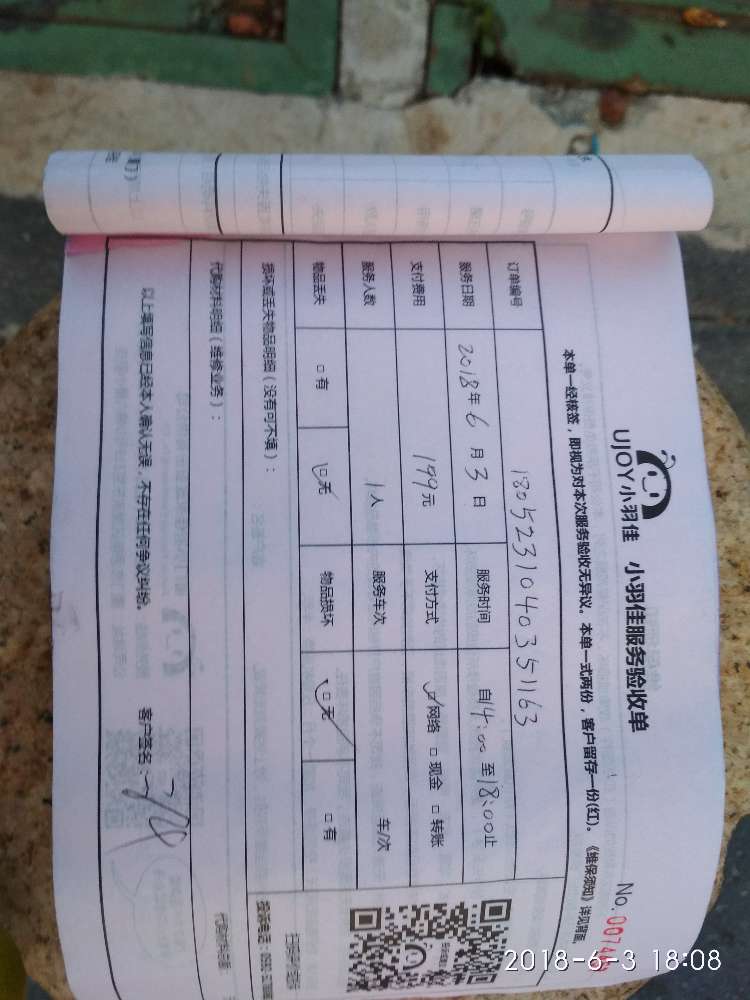 UJOY小羽佳 小羽佳服务验收单
No.
本单一经核签，即视为对本次服务验收无异议。本单一式两份，客户留存一份(红)。《维保须知》详见背面。
订单编号 180523104035163
服务日期 2018年6月3日 服务时间 自14:00至18:00止
支付费用 199元 支付方式 □网络 □现金 □转账
服务人数 1人 服务车次 车/次
物品丢失 □有 □无 物品损坏 □无 □有
损坏或丢失物品明细（没有可不填）：
代购材料明细（维修业务）：
以上填写信息已经本人确认无误，不存在任何争议纠纷。 客户签名：
投诉电话
2018-6-3 18:08